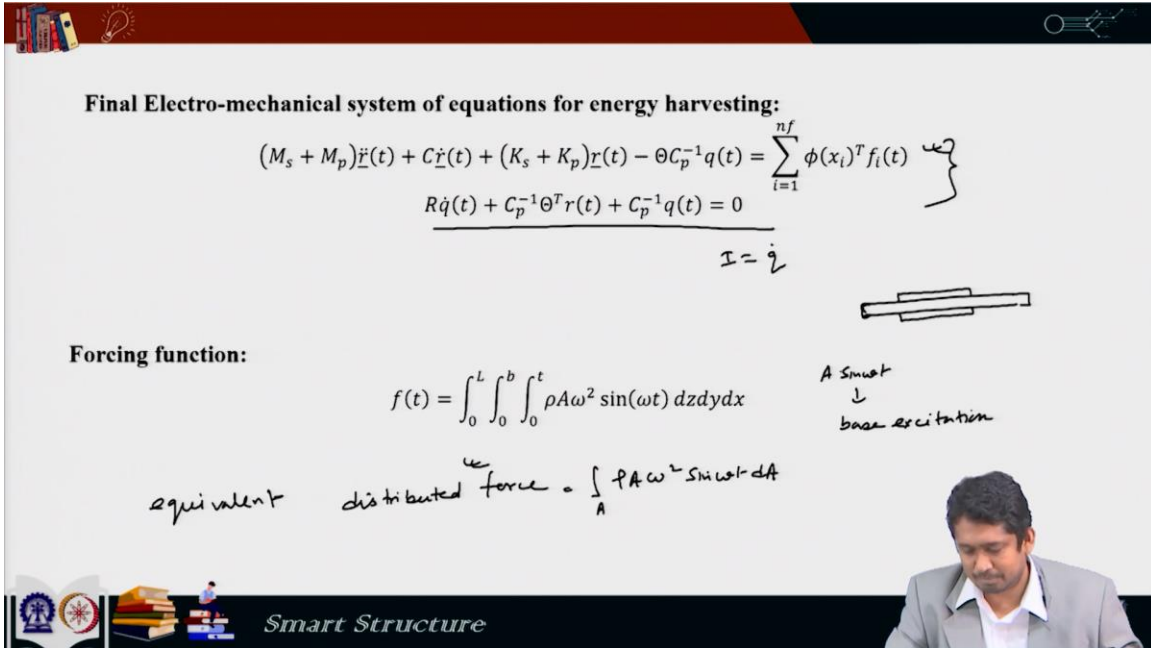 Final Electro-mechanical system of equations for energy harvesting:
(M_s + M_p)r̈(t) + Cṙ(t) + (K_s + K_p)r(t) − ΘC_p^{-1}q(t) = ∑_{i=1}^{nf} ϕ(x_i)^T f_i(t)
Rq̇(t) + C_p^{-1}Θ^T r(t) + C_p^{-1}q(t) = 0
I = q̇
Forcing function:
f(t) = ∫_0^L ∫_0^b ∫_0^t ρAω² sin(ωt) dzdydx
A sinωt
↓
base excitation
equivalent distributed force = ∫_A ρAω² sinωt dA
Smart Structure